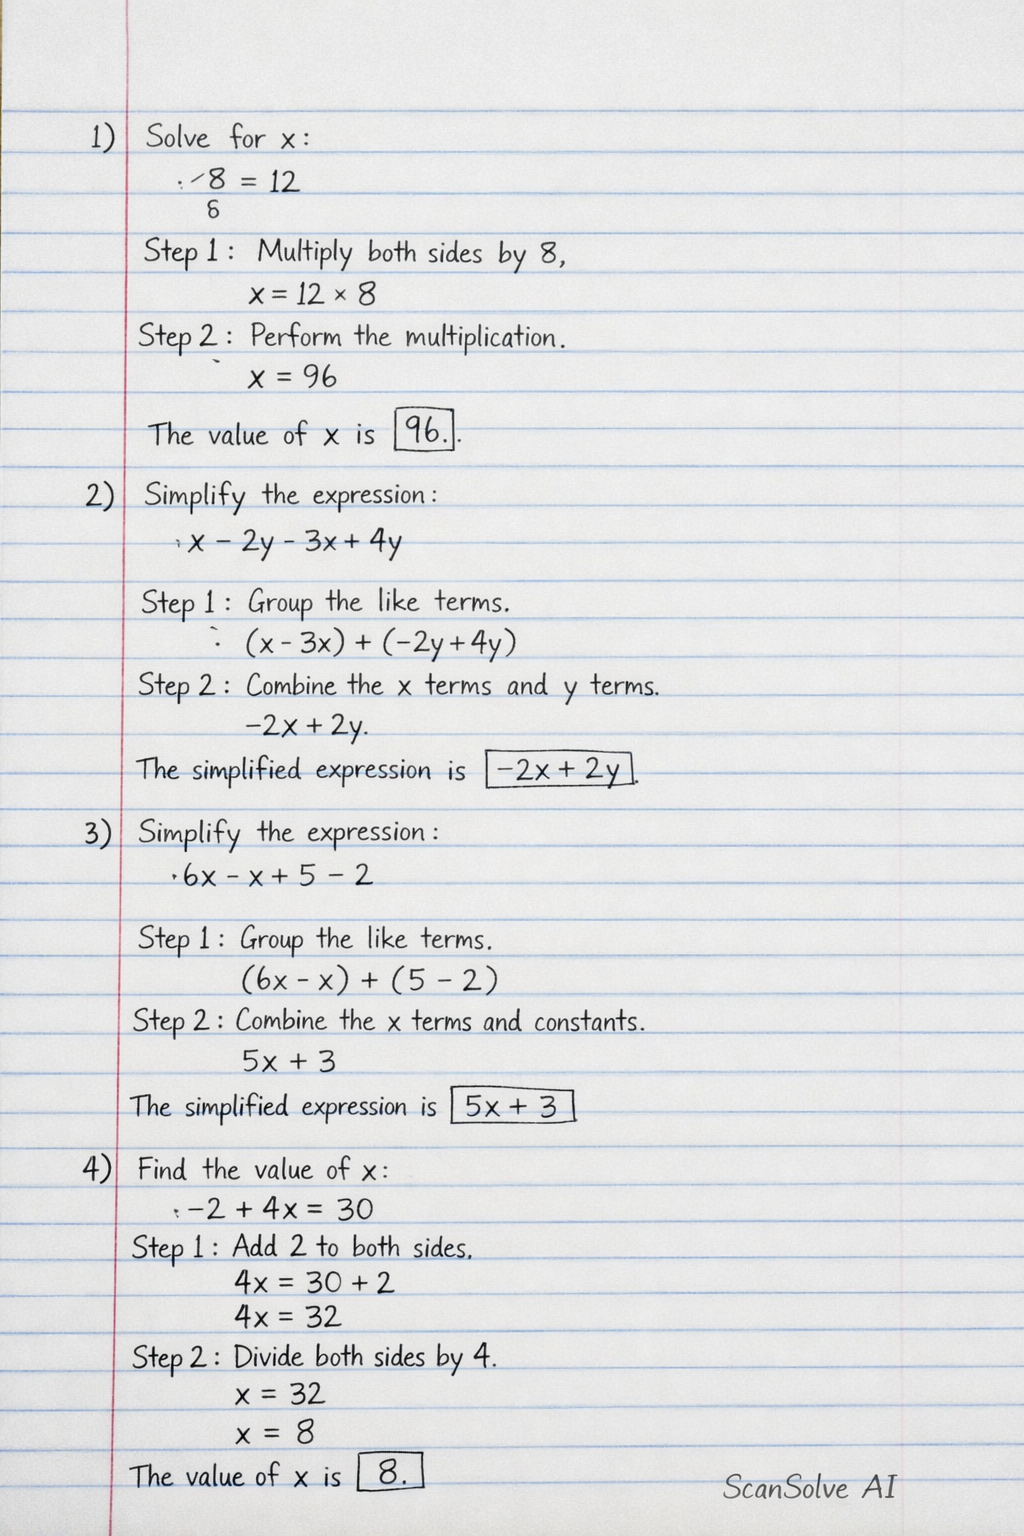 1) Solve for x:
8 = 12
8
Step 1: Multiply both sides by 8,
x = 12 × 8
Step 2: Perform the multiplication.
x = 96
The value of x is 96..
2) Simplify the expression:
x − 2y − 3x + 4y
Step 1: Group the like terms.
(x − 3x) + (−2y + 4y)
Step 2: Combine the x terms and y terms.
−2x + 2y.
The simplified expression is −2x + 2y.
3) Simplify the expression:
6x − x + 5 − 2
Step 1: Group the like terms.
(6x − x) + (5 − 2)
Step 2: Combine the x terms and constants.
5x + 3
The simplified expression is 5x + 3
4) Find the value of x:
−2 + 4x = 30
Step 1: Add 2 to both sides.
4x = 30 + 2
4x = 32
Step 2: Divide both sides by 4.
x = 32
x = 8
The value of x is 8.
ScanSolve AI